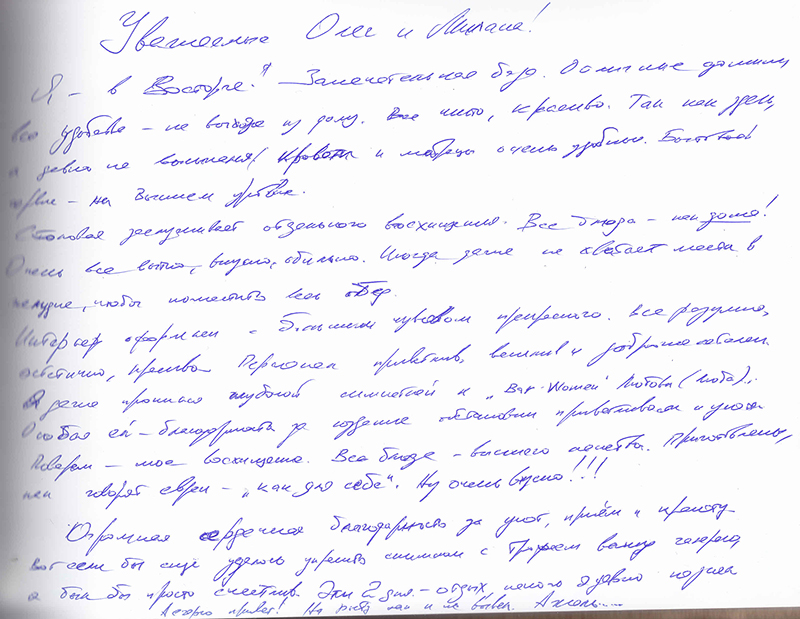 Уважаемые Олег и Милана!
Я - в Восторге! Замечательная база. Отличные домики,
все удобства - не выходя из дому. Все чисто, красиво. Так как здесь,
я давно не высыпался! Кровати и матрацы очень удобные. Бытовой
сервис - на высшем уровне.
Столовая заслуживает отдельного восхищения. Все блюда - как дома!
Очень все сытно, вкусно, обильно. Иногда даже не хватает места в
желудке, чтобы поместить обед.
Интерьер оформлен с большим чувством прекрасного. Все разумно,
эстетично, красиво. Персонал приветлив, вежлив и доброжелателен.
Я даже проникся глубокой симпатией к "Bar-Women" (Люба).
Особая ей - благодарность за создание обстановки приветливой и уюта.
Поварам - мое восхищение. Все блюда - высшего качества. Приготовлены,
как говорят евреи - "как для себе". Ну очень вкусно!!!
Огромная сердечная благодарность за уют, приём и красоту.
Вот если бы ещё удалось украсить с вашу галерею,
я был бы просто счастлив. Эти 2 дня - отдых, какого я давно
привет! На рыбу так и не выехал. Ахаль...